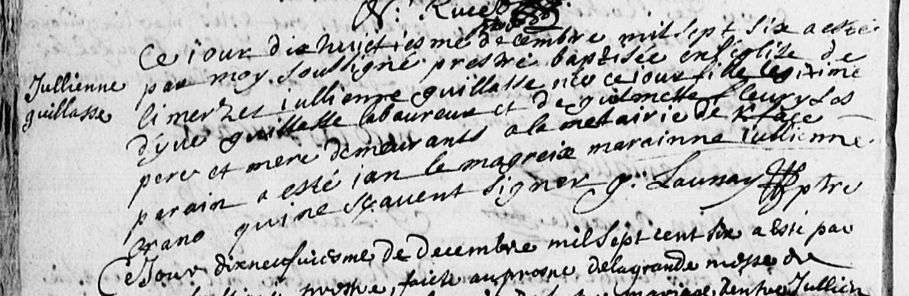 Jullienne
guillasse
Ce iour dixhuictiesme decembre mil sept six a esté
par moy soussigné prestre baptisée en l'eglise de
limerzel iullienne guillasse née ce iour fille legitime
d'yve guillasse laboureur et de guilmette fleury sos
pere et mere demeurants a la metairie de
parain a esté ian le magreix marainne iullienne
qui ne scavent signer g. Launay ptre
Ce Jour dixneufuiesme de decembre mil sept cent six a esté par
prestre, faicte au prosne de la grande messe de
mariage d'entre Jullien